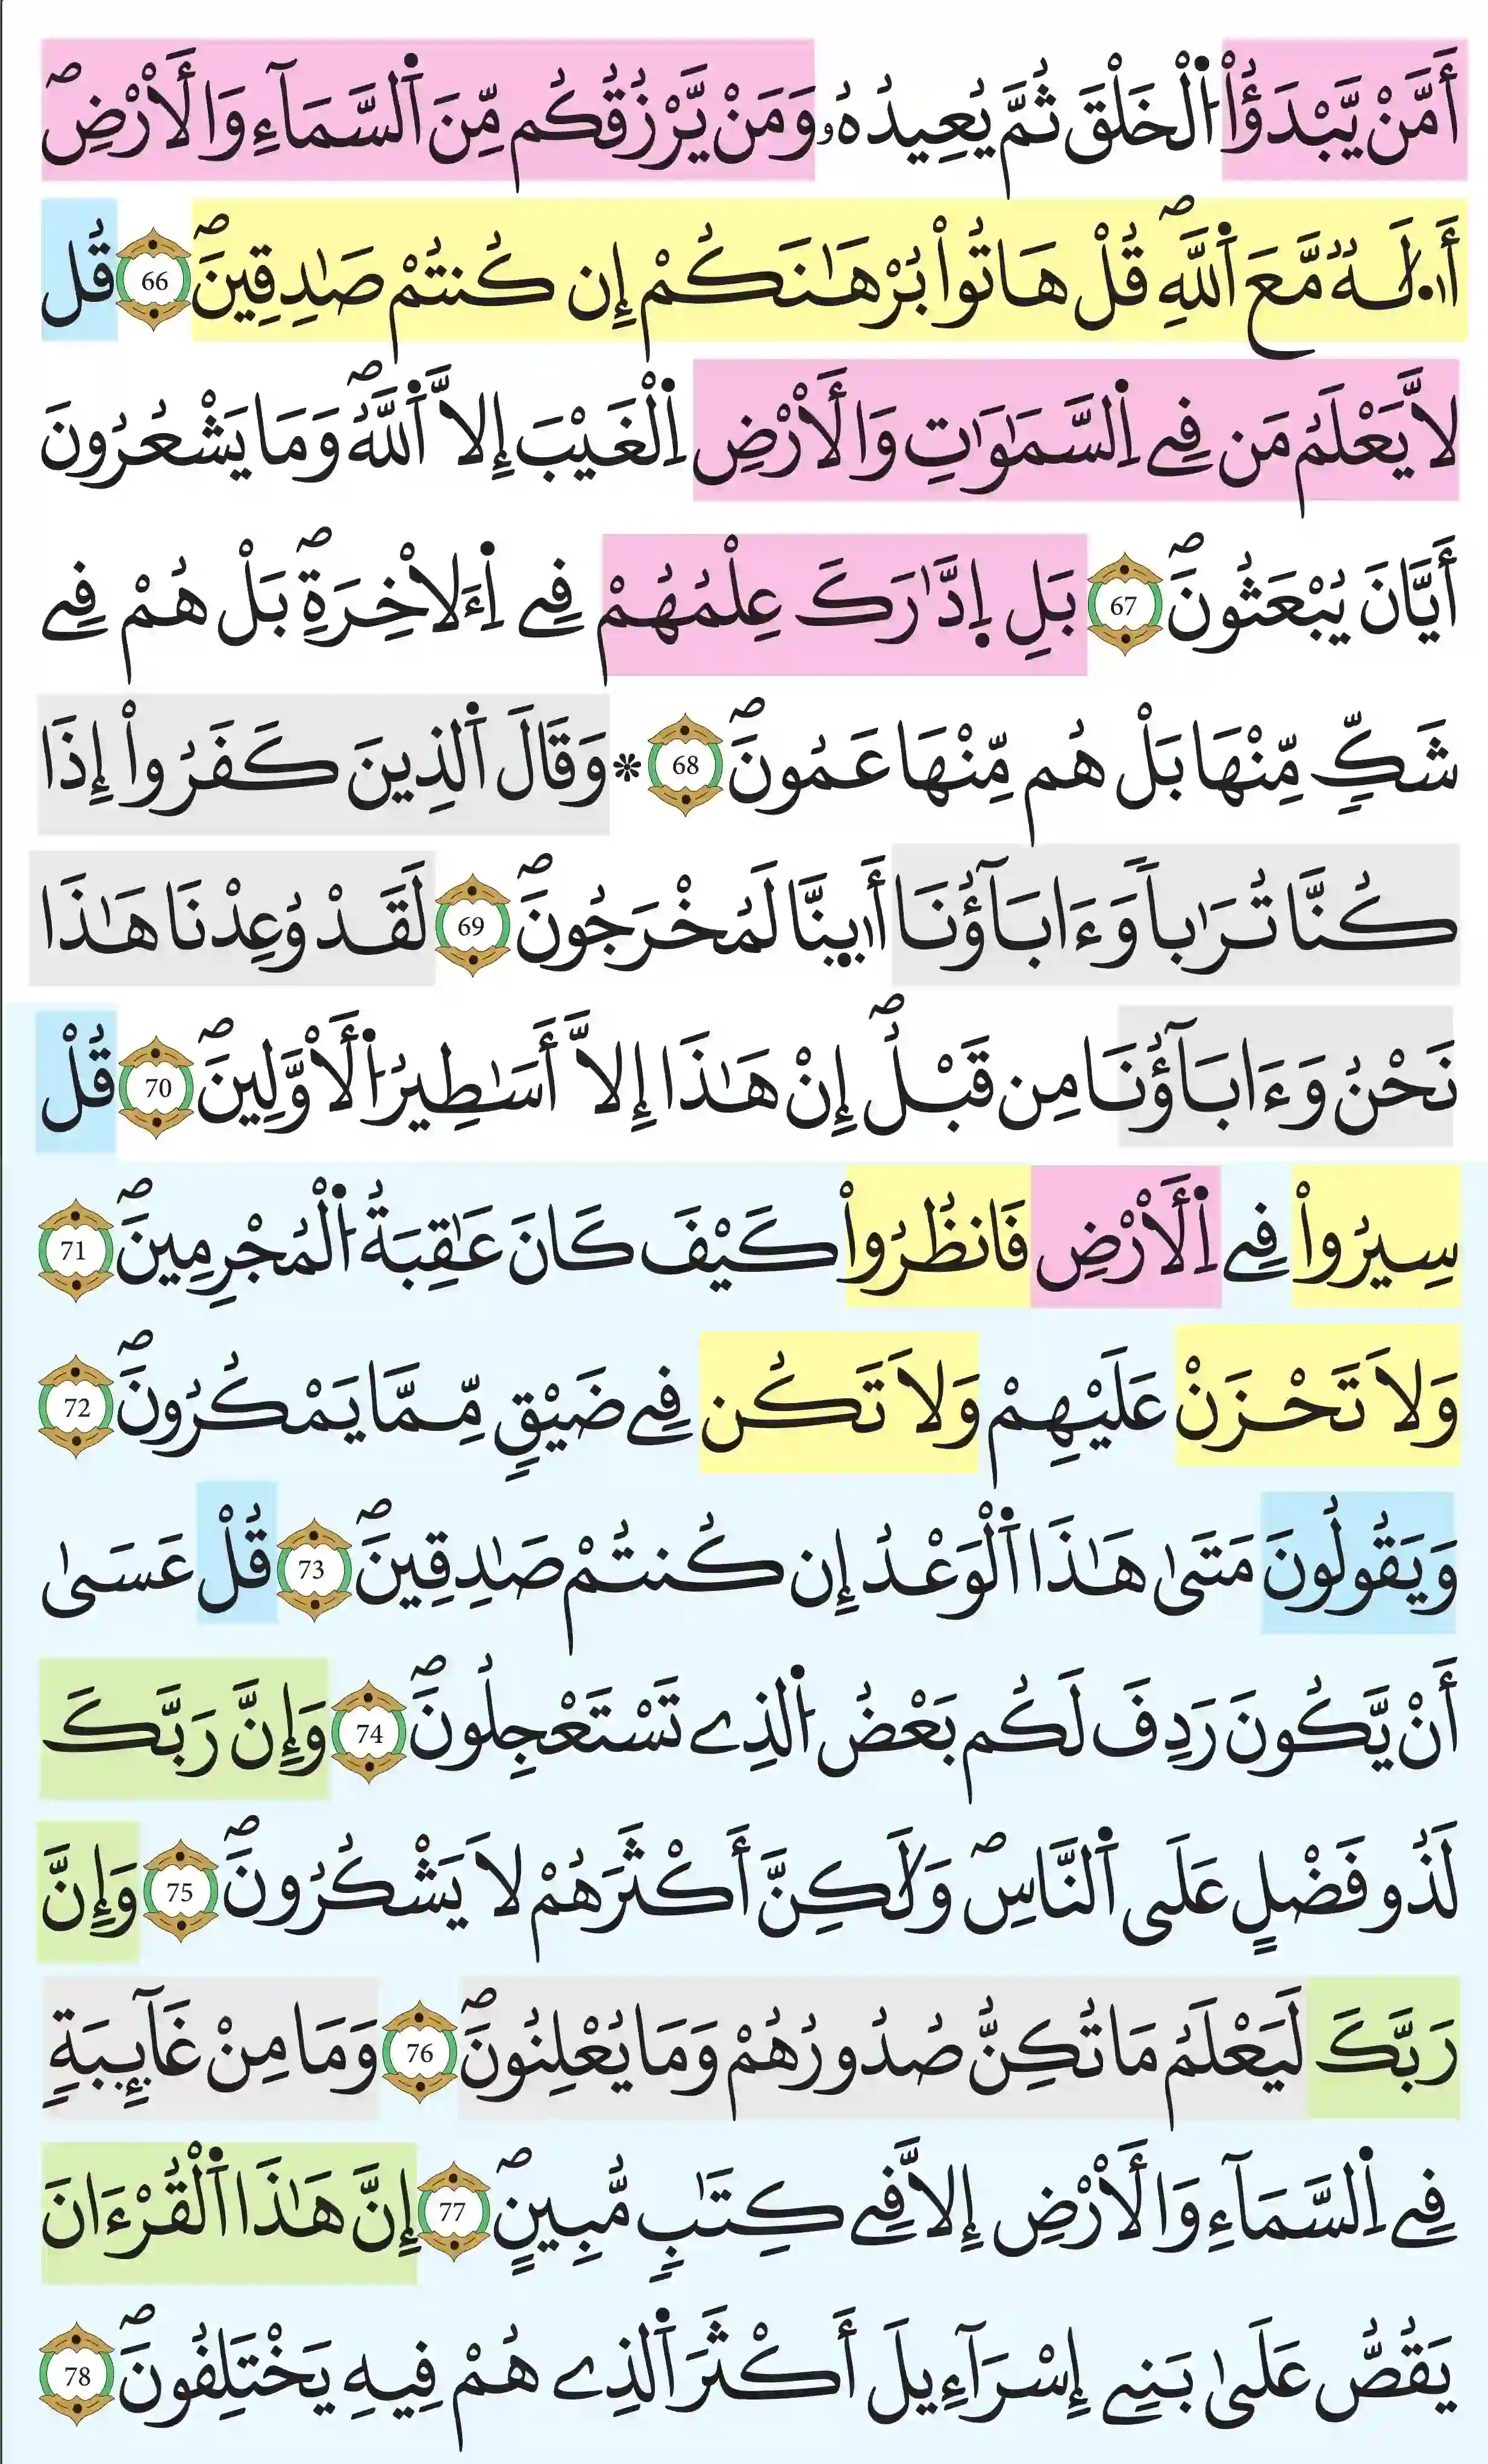 أَمَّنْ يَّبْدَؤُاْ اُ۬لْخَلْقَ ثُمَّ يُعِيدُهُۥ وَمَنْ يَّرْزُقُكُم مِّنَ اَ۬لسَّمَآءِ وَالَارْضِۖ
أَ.لَٰهٞ مَّعَ اَ۬للَّهِۖ قُلْ هَاتُواْ بُرْهَٰنَكُمْ إِن كُنتُمْ صَٰدِقِينَۖ 66 قُل
لَّا يَعْلَمُ مَن فِے اِ۬لسَّمَٰوَٰتِ وَالَارْضِ اِ۬لْغَيْبَ إِلَّا اَ۬للَّهُۖ وَمَا يَشْعُرُونَ
أَيَّانَ يُبْعَثُونَۖ 67 بَلِ اِ۪دَّٰرَكَ عِلْمُهُمْ فِے اِ۬ءَلَاخِرَةِۖ بَلْ هُمْ فِے
شَكّٖ مِّنْهَا بَلْ هُم مِّنْهَا عَمُونَۖ 68 * وَقَالَ اَ۬لذِينَ كَفَرُواْ إِذَا
كُنَّا تُرَٰباٗ وَءَابَآؤُنَا أَ.ىِٕنَّا لَمُخْرَجُونَۖ 69 لَقَدْ وُعِدْنَا هَٰذَا
نَحْنُ وَءَابَآؤُنَا مِن قَبْلُۖ إِنْ هَٰذَا إِلَّا أَسَٰطِيرُ اُ۬لَاوَّلِينَۖ 70 قُلْ
سِيرُواْ فِے اِ۬لَارْضِ فَانظُرُواْ كَيْفَ كَانَ عَٰقِبَةُ اُ۬لْمُجْرِمِينَۖ 71
وَلَا تَحْزَنْ عَلَيْهِمْ وَلَا تَكُن فِے ضَيْقٖ مِّمَّا يَمْكُرُونَۖ 72
وَيَقُولُونَ مَتَىٰ هَٰذَا اَ۬لْوَعْدُ إِن كُنتُمْ صَٰدِقِينَۖ 73 قُلْ عَسَىٰ
أَنْ يَّكُونَ رَدِفَ لَكُم بَعْضُ اُ۬لذِے تَسْتَعْجِلُونَۖ 74 وَإِنَّ رَبَّكَ
لَذُو فَضْلٍ عَلَى اَ۬لنَّاسِۖ وَلَٰكِنَّ أَكْثَرَهُمْ لَا يَشْكُرُونَۖ 75 وَإِنَّ
رَبَّكَ لَيَعْلَمُ مَا تُكِنُّ صُدُورُهُمْ وَمَا يُعْلِنُونَۖ 76 وَمَا مِنْ غَآئِبَةٖ
فِے اِ۬لسَّمَآءِ وَالَارْضِ إِلَّا فِے كِتَٰبٖ مُّبِينٍۖ 77 إِنَّ هَٰذَا اَ۬لْقُرْءَانَ
يَقُصُّ عَلَىٰ بَنِے إِسْرَآءِيلَ أَكْثَرَ اَ۬لذِے هُمْ فِيهِ يَخْتَلِفُونَۖ 78